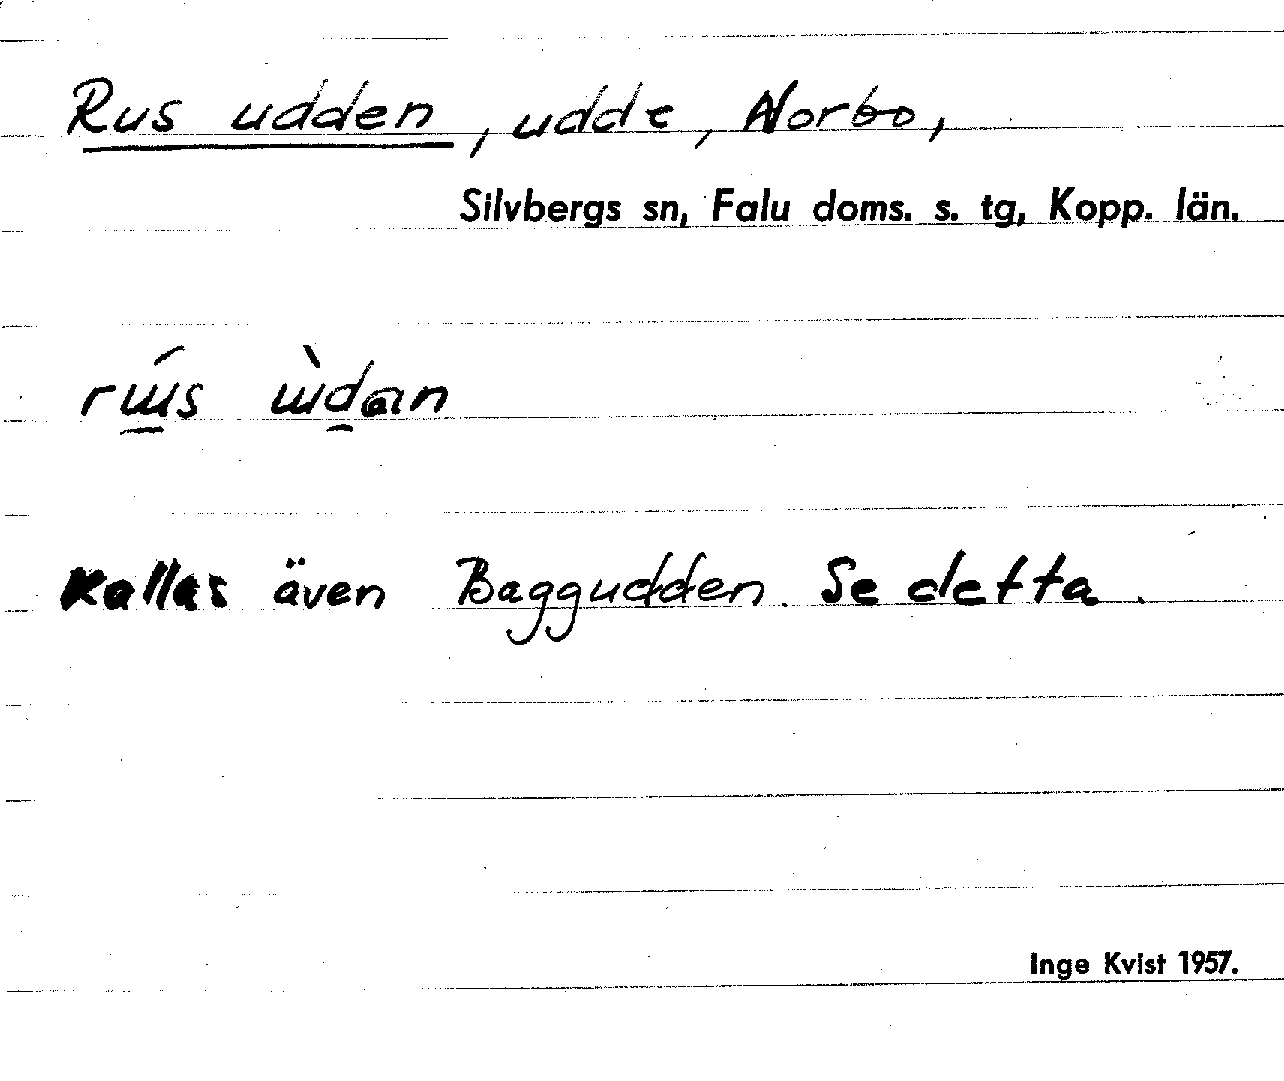 Rus udden, udde, Norbo,
Silvbergs sn, Falu doms. s. tg, Kopp. län.
Kallas även Baggudden. Se detta.
Inge Kvist 1957.